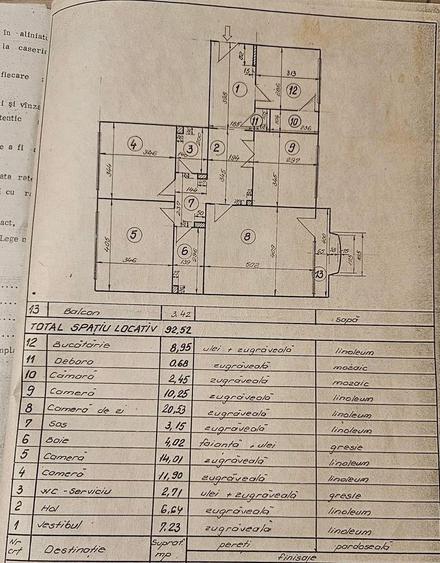 în aliniat
la caseri
fiecare
și vînza
tentic
e a fi
ata
cu
act,
Lege n
1
12
313
11
10
236
4
346
3
2
185
194
9
297
345
345
344
7
144
5
346
405
6
8
502
409
13
13 Balcon 3.42 sapă
TOTAL SPAȚIU LOCATIV 92.52
12 Bucătărie 8,95 ulei + zugrăveală linoleum
11 Debara 0.68 zugrăveală mozaic
10 Cămară 2,45 zugrăveală mozaic
9 Cameră 10,25 zugrăveală linoleum
8 Cameră de zi 20,53 zugrăveală linoleum
7 Sas 3,15 zugrăveală linoleum
6 Baie 4,02 faianță + ulei gresie
5 Cameră 14,01 zugrăveală linoleum
4 Cameră 11,90 zugrăveală linoleum
3 WC - Serviciu 2,71 ulei + zugrăveală gresie
2 Hol 6,64 zugrăveală linoleum
1 Vestibul 7.23 zugrăveală linoleum
Nr crt Destinație Supraf. mp pereti pardoseală
finisaje